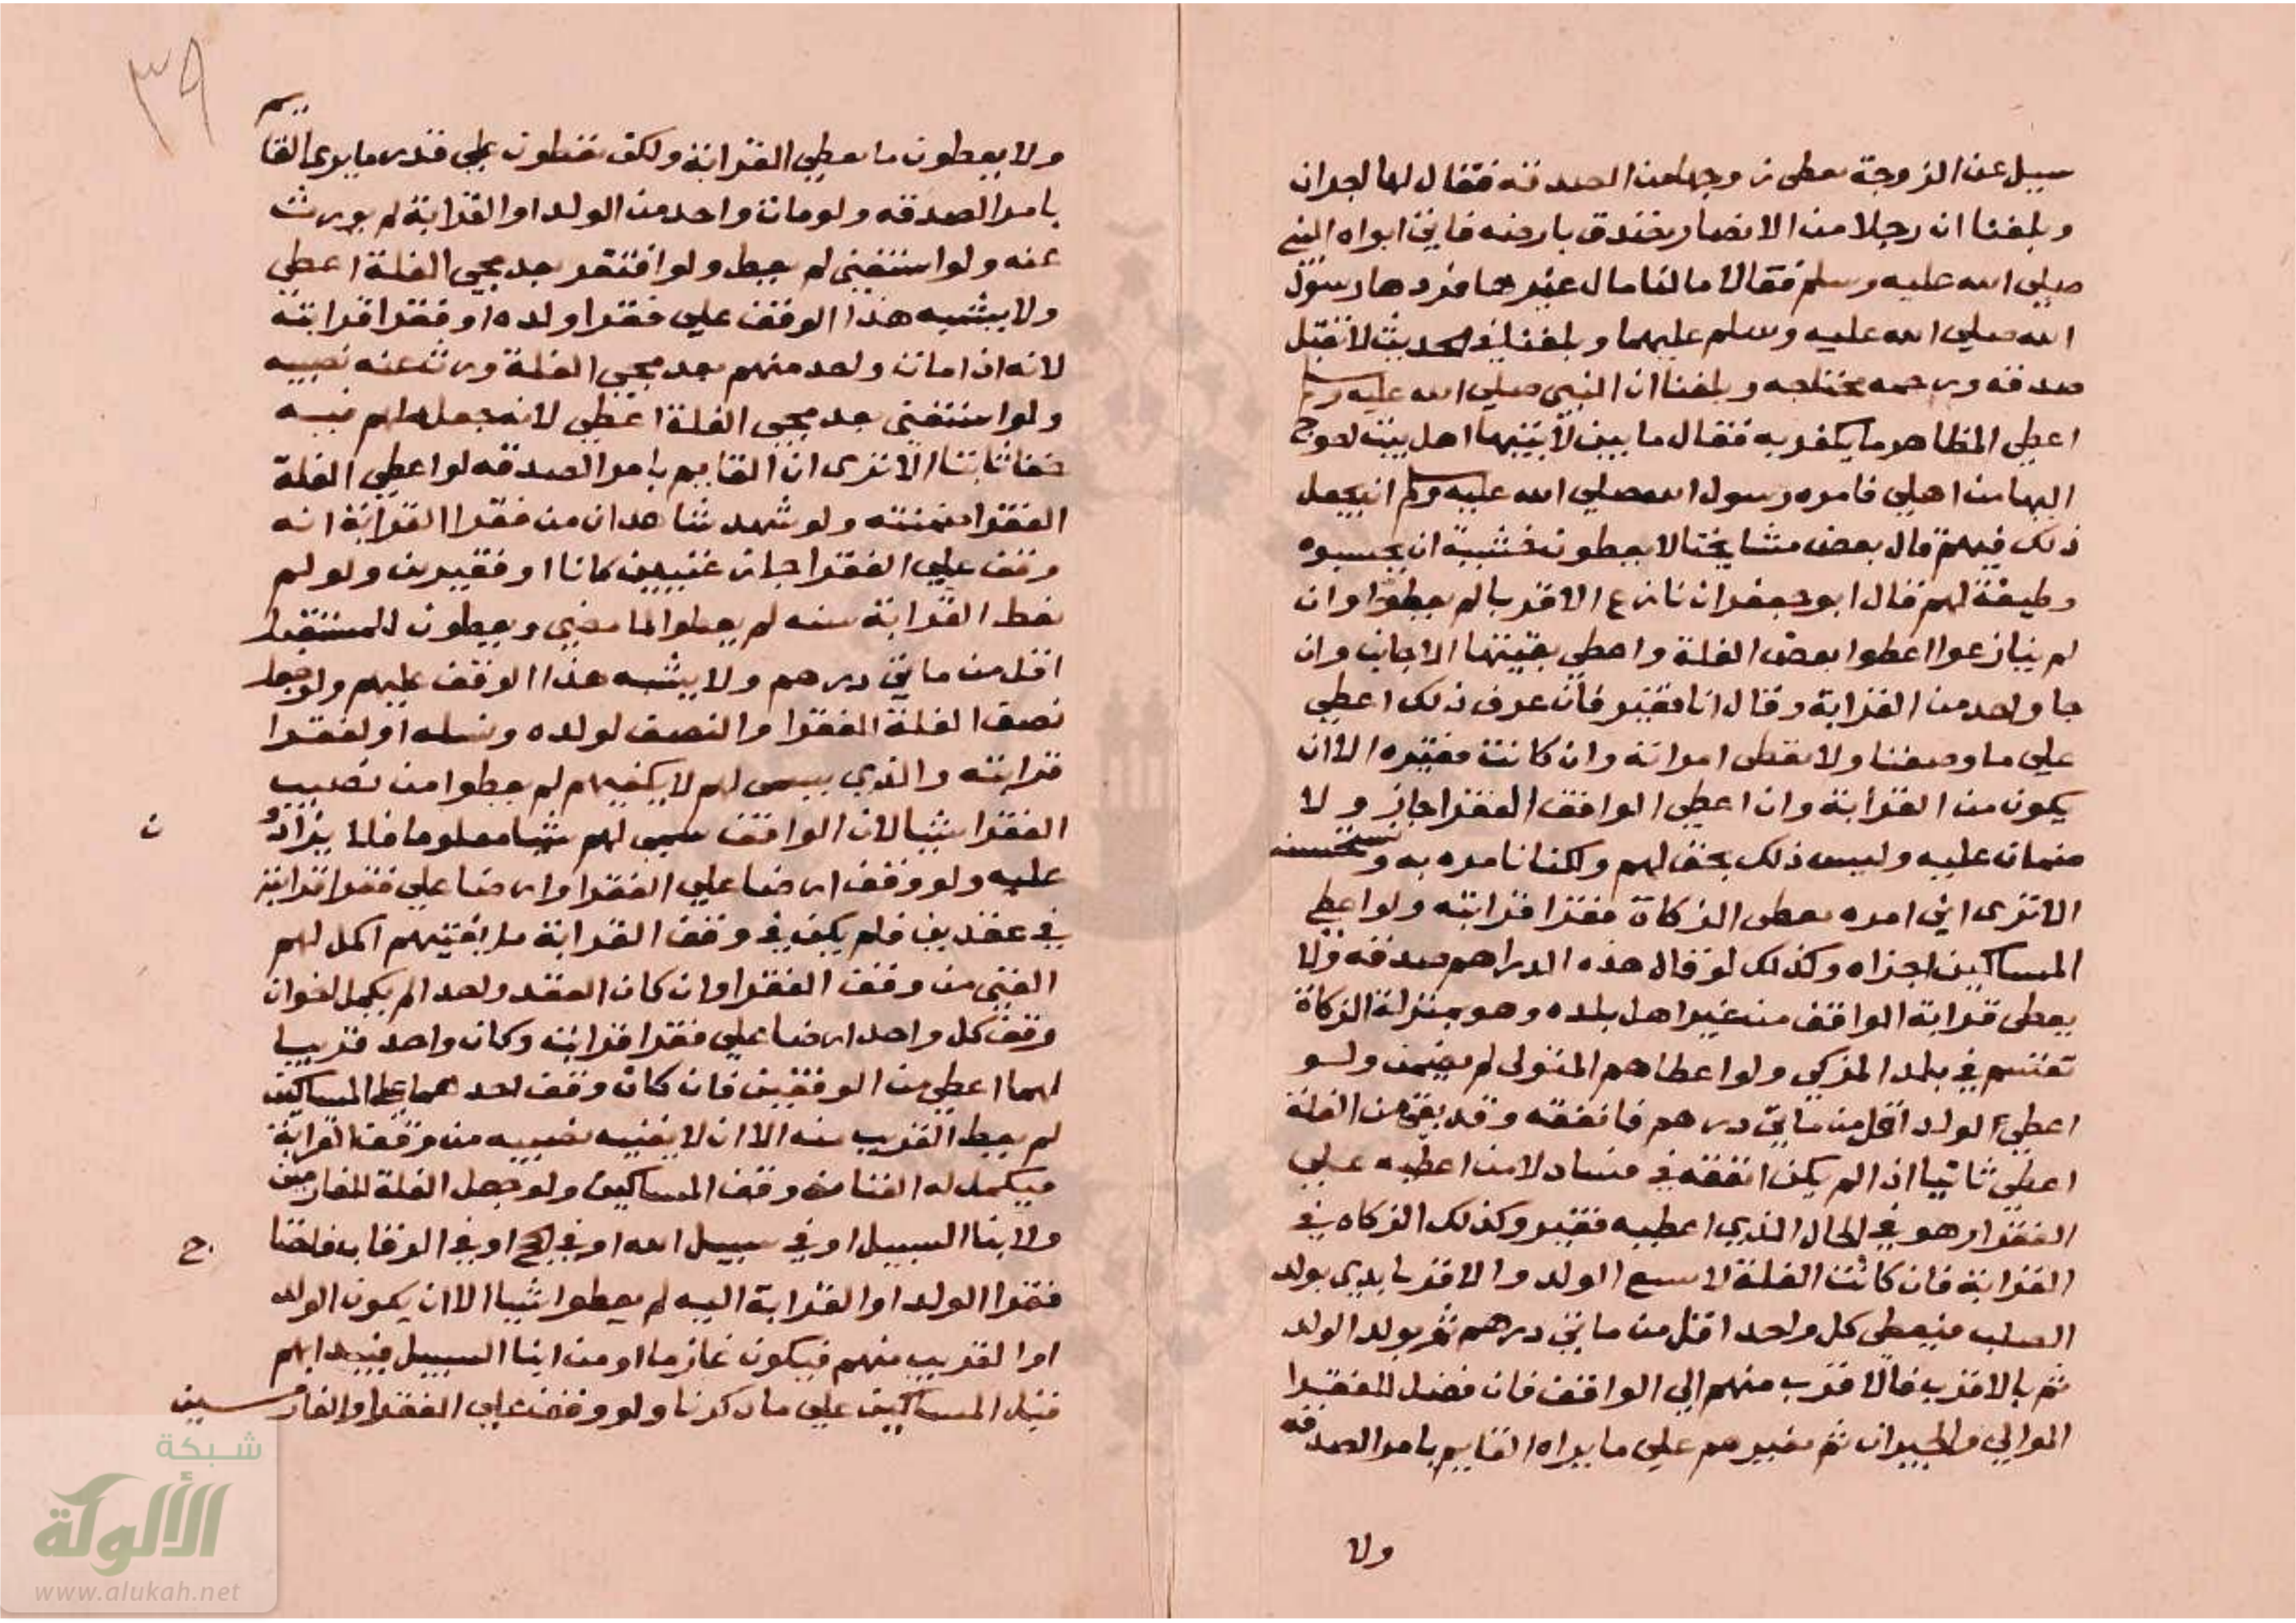 سيل عن الزوجة تعطى زوجها من الصدقه فقال لها اجران
وبلغنا ان رجلا من الانصار تصدق بارضه فاتى ابواه النبي
صلى الله عليه وسلم فقالا ما لنا مال غيرها فردها رسول
الله صلى الله عليه وسلم عليهما وبلغنا في الحديث لا تقبل
صدقه ورحمه محتاجه وبلغنا ان النبي صلى الله عليه وسلم
اعطى المظاهر ما يكفر به فقال ما بين لابتيها اهل بيت احوج
اليها من اهلي فامره رسول الله صلى الله عليه وسلم ان يجعل
ذلك فيهم قال بعض مشايخنا لا يعطون خشية ان يحسبوه
وظيفة لهم قال ابو جعفر ان نازع الاقربا لم يعطوا وان
لم ينازعوا اعطوا بعض الغلة واعطى بقيتها الاجانب وان
جا واحد من القرابة وقال انا فقير فان عرف ذلك اعطي
على ما وصفنا ولا تعطى امراته وان كانت فقيره الا ان
يكون من القرابة وان اعطى الواقف الفقرا جاز ولا
ضمان عليه وليس ذلك بحق لهم ولكنا نامره به ونستحسنه
الا ترى اني امره يعطى الزكاة فقرا قرابته ولو اعطى
المساكين اجزاه وكذلك لو قال هذه الدراهم صدقه ولا
يعطى قرابة الواقف من غير اهل بلده وهو بمنزلة الزكاة
تقسم في بلد المزكي ولو اعطاهم المتولى لم يضمن ولو
اعطى الولد اقل من مايتي درهم فانفقه وقد بقى من الغلة
اعطى ثانيا اذا لم يكن انفقه في فساد لا من اعطيه على
الفقر وهو في الحال الذي اعطيه فقير وكذلك الزكاه في
القرابة فان كانت الغلة لا تسع الولد والاقربا بدى بولد
الصلب فيعطى كل واحد اقل من مايتي درهم ثم بولد الولد
ثم بالاقرب فالاقرب منهم الى الواقف فان فضل للفقرا
الموالي والجيران ثم غيرهم على ما يراه القايم بامر الصدقه
ولا
٣٩
ولا يعطون ما يعطي القرابة ولكن يعطون على قدر ما يرى القايم
بامر الصدقه ولو مات واحد من الولد او القرابة لم يورث
عنه ولو استغنى لم يعط ولو افتقر بعد مجي الغلة اعطي
ولا يشبه هذا الوقف على فقرا ولده او فقرا قرابته
لانه اذا مات واحد منهم بعد مجي الغلة ورث عنه نصيبه
ولو استغنى بعد مجى الغلة اعطي لانه جعل لهم فيه
حقا ثابتا الا ترى ان القايم بامر الصدقه لو اعطى الغلة
الفقرا ضمنته ولو شهد شاهدان من فقرا القرابة انه
وقف على الفقرا جاز غنيين كانا او فقيرين ولو لم
تعط القرابة سنه لم يعطوا لما مضى ويعطون للمستقبل
اقل من مايتي درهم ولا يشبه هذا الوقف عليهم ولو جعل
نصف الغلة للفقرا والنصف لولده ونسله او لفقرا
قرابته والذي يسمى لهم لا يكفيهم لم يعطوا من نصيب
الفقرا شيا لان الواقف سمى لهم شيا معلوما فلا يزادوا
عليه ولو وقف ارضا على الفقرا وارضا على فقرا قرابته
في عقدين فلم يكن في وقف القرابة ما يغنيهم اكمل لهم
الغنى من وقف الفقرا وان كان العقد واحدا لم يكمل اخوان
وقف كل واحد ارضا على فقرا قرابته وكان واحد قريبا
لهما اعطي من الوقفين فان كان وقف احدهما على المساكين
لم يعط القريب منه الا ان لا يغنيه نصيبه من وقف القرابة
فيكمل له الغنا من وقف المساكين ولو جعل الغلة للغارمين
ولابنا السبيل او في سبيل الله او في الحج او في الرقاب فاحتاج
فقرا الولد او القرابة اليه لم يعطوا شيا الا ان يكون الولد
او القريب منهم فيكون غارما او من ابنا السبيل فيبدا بهم
قبل المساكين على ما ذكرنا ولو وقف على الفقرا والغارمين
ن
ح
شبكة
الألوكة
www.alukah.net